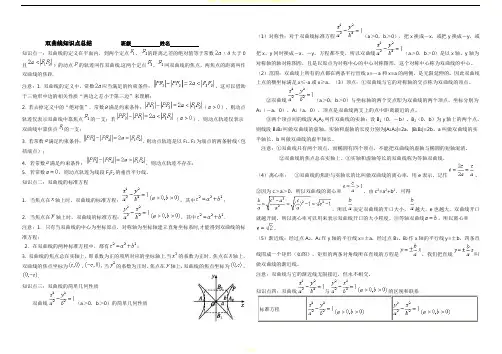 双曲线知识点总结 班级 姓名
知识点一：双曲线的定义在平面内，到两个定点F₁、F₂的距离之差的绝对值等于常数2a（a大于0
且2a<|F₁F₂|）的动点P的轨迹叫作双曲线.这两个定点F₁、F₂叫双曲线的焦点，两焦点的距离叫作
双曲线的焦距.
注意：1. 双曲线的定义中，常数2a应当满足的约束条件：||PF₁|-|PF₂||=2a<|F₁F₂|，这可以借助
于三角形中边的相关性质“两边之差小于第三边”来理解；
2. 若去掉定义中的“绝对值”，常数a满足约束条件：|PF₁|-|PF₂|=2a<|F₁F₂|（a>0），则动点
轨迹仅表示双曲线中靠焦点F₂的一支；若|PF₂|-|PF₁|=2a<|F₁F₂|（a>0），则动点轨迹仅表示
双曲线中靠焦点F₁的一支；
3. 若常数a满足约束条件：||PF₁|-|PF₂||=2a=|F₁F₂|，则动点轨迹是以F₁、F₂为端点的两条射线（包
括端点）；
4. 若常数a满足约束条件：||PF₁|-|PF₂||=2a>|F₁F₂|，则动点轨迹不存在；
5. 若常数a=0，则动点轨迹为线段F₁F₂的垂直平分线。
知识点二：双曲线的标准方程
1. 当焦点在x轴上时，双曲线的标准方程：x²/a²-y²/b²=1(a>0,b>0)，其中c²=a²+b²；
2. 当焦点在y轴上时，双曲线的标准方程：y²/a²-x²/b²=1(a>0,b>0)，其中c²=a²+b².
注意：1. 只有当双曲线的中心为坐标原点，对称轴为坐标轴建立直角坐标系时,才能得到双曲线的标
准方程；
2. 在双曲线的两种标准方程中，都有c²=a²+b²；
3. 双曲线的焦点总在实轴上，即系数为正的项所对应的坐标轴上.当x²的系数为正时，焦点在x轴上，
双曲线的焦点坐标为(c,0)，(-c,0)；当y²的系数为正时，焦点在y轴上，双曲线的焦点坐标为(0,c)，
(0,-c).
知识点三：双曲线的简单几何性质
双曲线x²/a²-y²/b²=1（a>0，b>0）的简单几何性质
（1）对称性：对于双曲线标准方程x²/a²-y²/b²=1（a>0，b>0），把x换成―x，或把y换成―y，或
把x、y同时换成―x、―y，方程都不变，所以双曲线x²/a²-y²/b²=1（a>0，b>0）是以x轴、y轴为
对称轴的轴对称图形，且是以原点为对称中心的中心对称图形，这个对称中心称为双曲线的中心。
（2）范围：双曲线上所有的点都在两条平行直线x=―a和x=a的两侧，是无限延伸的。因此双曲线
上点的横坐标满足x≤-a或x≥a。（3）顶点：①双曲线与它的对称轴的交点称为双曲线的顶点。
②双曲线x²/a²-y²/b²=1（a>0，b>0）与坐标轴的两个交点即为双曲线的两个顶点，坐标分别为
A₁（―a，0），A₂（a，0），顶点是双曲线两支上的点中距离最近的点。
③两个顶点间的线段A₁A₂叫作双曲线的实轴；设B₁（0，―b），B₂（0，b）为y轴上的两个点，
则线段B₁B₂叫做双曲线的虚轴。实轴和虚轴的长度分别为|A₁A₂|=2a，|B₁B₂|=2b。a叫做双曲线的实
半轴长，b叫做双曲线的虚半轴长。
注意：①双曲线只有两个顶点，而椭圆有四个顶点，不能把双曲线的虚轴与椭圆的短轴混淆。
②双曲线的焦点总在实轴上。③实轴和虚轴等长的双曲线称为等轴双曲线。
（4）离心率：①双曲线的焦距与实轴长的比叫做双曲线的离心率，用e表示，记作e=2c/2a=c/a。
②因为c>a>0，所以双曲线的离心率e=c/a>1。由c²=a²+b²，可得
b/a=√((c²-a²)/a²)=√((c/a)²-1)=√(e²-1)，所以b/a决定双曲线的开口大小，b/a越大，e也越大，双曲线开口
越阔开阔。所以离心率可以用来表示双曲线开口的大小程度。③等轴双曲线a=b，所以离心率
e=√2。
（5）渐近线：经过点A₂、A₁作y轴的平行线x=±a，经过点B₁、B₂作x轴的平行线y=±b，四条直
线围成一个矩形（如图），矩形的两条对角线所在直线的方程是y=±(b/a)x，我们把直线y=±(b/a)x叫
做双曲线的渐近线。
注意：双曲线与它的渐近线无限接近，但永不相交。
知识点四：双曲线x²/a²-y²/b²=1与y²/a²-x²/b²=1(a>0,b>0)的区别和联系
标准方程 x²/a²-y²/b²=1(a>0,b>0) y²/a²-x²/b²=1(a>0,b>0)